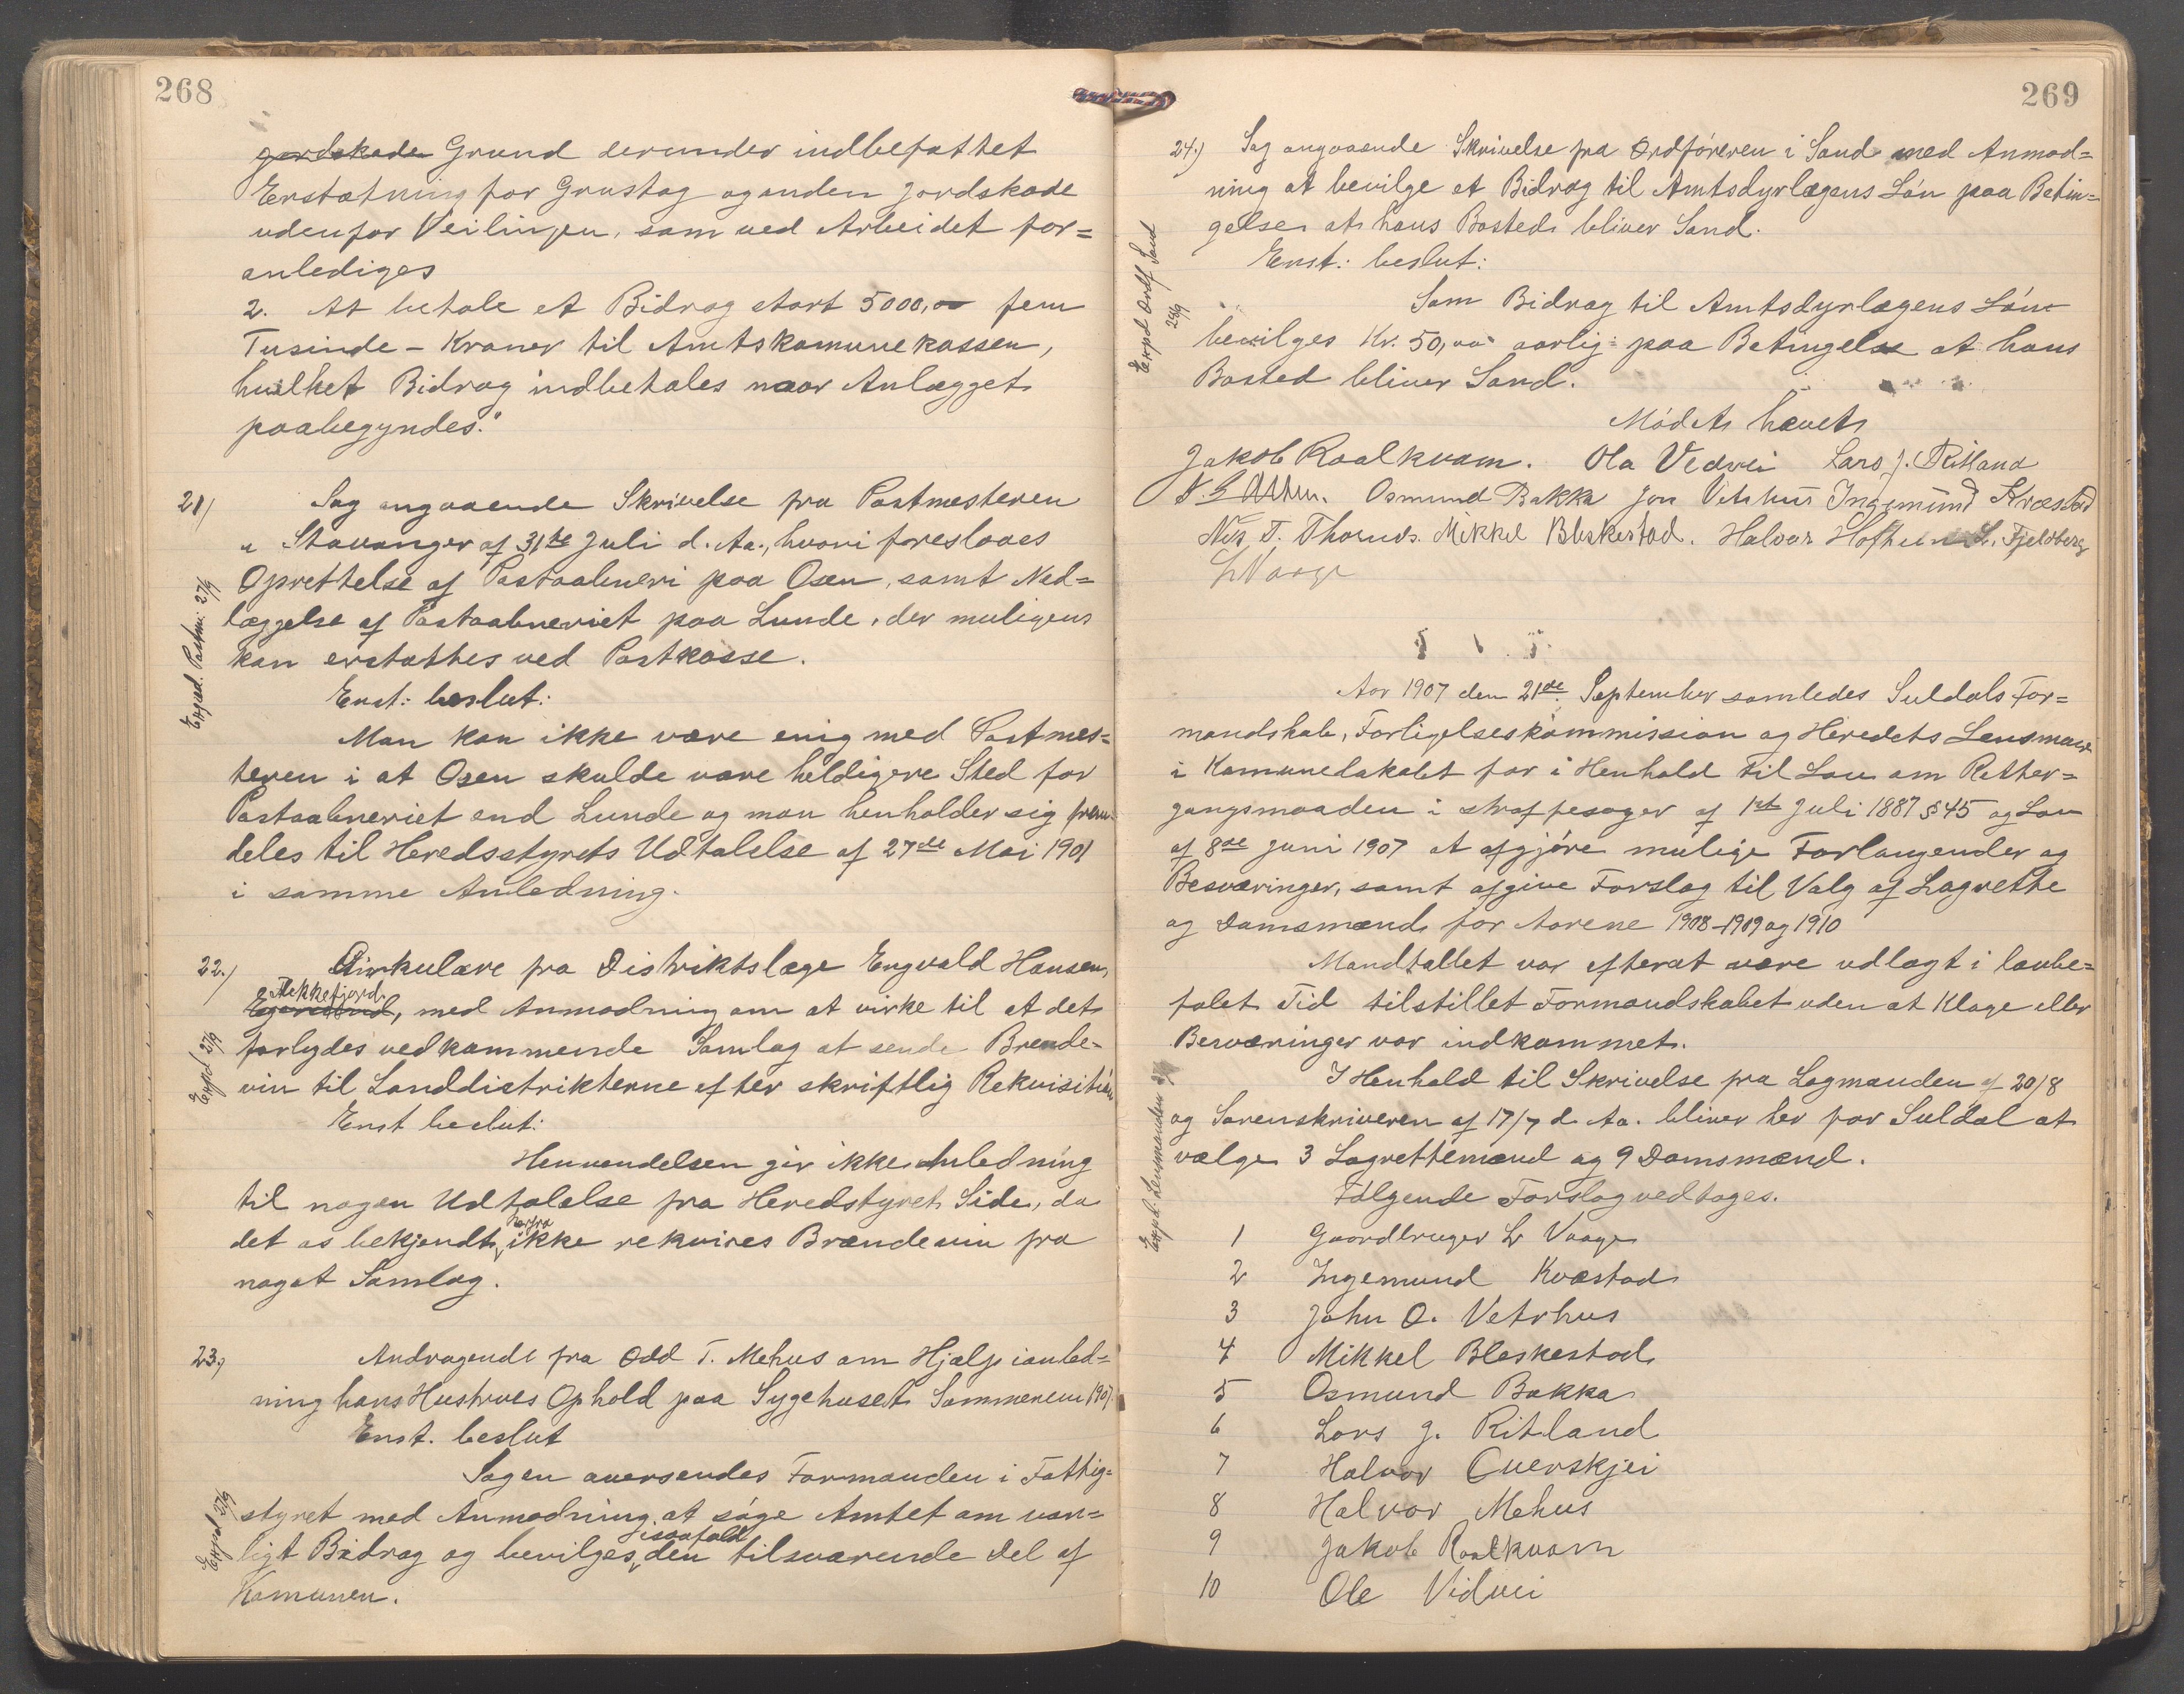 268
jordskade Grund derunder indbefattet
Erstatning for Grustag og anden Jordskade
udenfor Veilinjen, som ved Arbeidet for=
anlediges
2. At betale et Bidrag stort 5000,00 fem
Tusinde - Kroner til Amtskomunekassen,
hvilket Bidrag indbetales naar Anlægget
paabegyndes."
21/ Sag angaaende Skrivelse fra Postmesteren
i Stavanger af 31te Juli d. Aa., hvori foreslaaes
Oprettelse af Postaabneri paa Osen, samt Ned=
læggelse af Postaabneriet paa Lunde, der muligens
kan erstattes ved Postkasse.
Exped. Postm. 27/9
Enst: beslut:
Man kan ikke være enig med Postmes=
teren i at Osen skulde være heldigere Sted for
Postaabneriet end Lunde og man henholder sig frem=
deles til Heredsstyrets Udtalelse af 27de Mai 1901
i samme Anledning.
22./ Cirkulære fra Distriktslæge Engvald Hansen,
Flekkefjord
Egersund, med Anmodning om at virke til at det
forbydes vedkommende Samlag at sende Brende=
vin til Landdistrikterne efter skriftlig Rekvisition
Expd 27/9
Enst beslut:
Henvendelsen gir ikke Anledning
til nogen Udtalelse fra Heredstyrets Side, da
det os bekjendt herfra ikke rekvires Brændevin fra
noget Samlag.
23./ Andragende fra Odd T. Mehus om Hjælp i anled=
ning hans Hustrues Ophold paa Sygehuset Sommeren 1907
Enst. beslut
Sagen oversendes Formanden i Fattig=
styret med Anmodning at søge Amtet om van=
ligt Bidrag og bevilges isaafald den tilsvarende Del af
Komunen.
Expd 27/9
269
24./ Sag angaaende Skrivelse fra Ordføreren i Sand med Anmod=
ning at bevilge et Bidrag til Amtsdyrlægens Løn paa Betin=
gelse at hans Bosted bliver Sand.
Enst: beslut:
Expd Ordf Sand
Som Bidrag til Amtsdyrlægens Løn
bevilges Kr. 50,00 aarlig paa Betingelse at hans
Bosted bliver Sand.
Mødet hævet
Jakob Raalkvam. Ola Vedvei Lars J. Ritland
Osmund Bakka Jon Vetrhus Ingemund Kvæstad
Nils T. Thornes. Mikkel Bleskestad. Halvor Hofheim L. Fjeldberg
L Vaage
Aar 1907 den 21de September samledes Suldals For=
mandskab, Forligelseskommission og Heredets Lensmand
i Komunelokalet for i Henhold til Lov om Retter=
gangsmaaden i straffesager af 1st Juli 1887 § 45 og Lov
af 8de Juni 1907 at afgjøre mulige Forlangender og
Besværinger, samt afgive Forslag til Valg af Lagrette
og Domsmænd for Aarene 1908-1909 og 1910
Mandtallet var efterat være udlagt i lovbe=
falet Tid tilstillet Formandskabet uden at Klage eller
Besværinger var indkommet.
I Henhold til Skrivelse fra Lagmanden af 20/8
og Sorenskriveren af 17/7 d. Aa. bliver her for Suldal at
vælge 3 Lagrettemænd og 9 Domsmænd.
Expd. Lensmanden
Følgende Forslag vedtages.
1 Gaardbruger L Vaage
2 Ingemund Kvæstad
3 John O. Vetrhus
4 Mikkel Bleskestad
5 Osmund Bakka
6 Lars J. Ritland
7 Halvor Querskjei
8 Halvor Mehus
9 Jakob Raalkvam
10 Ole Vidvei